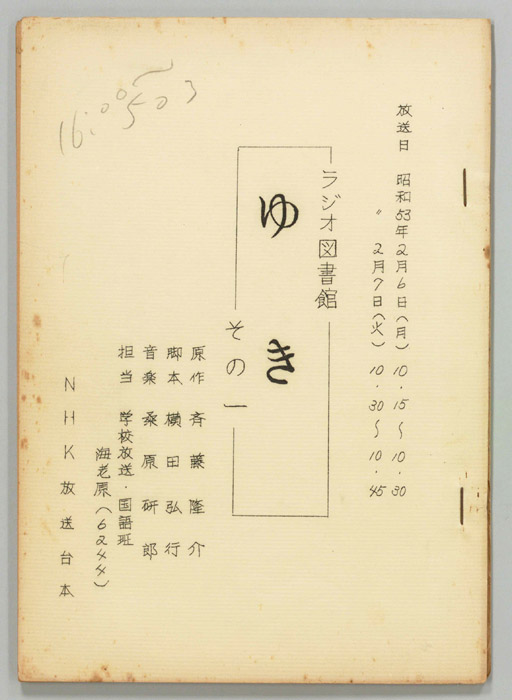 放送日 昭和53年2月6日(月) 10・15〜10・30
〃 2月7日(火) 10・30〜10・45
ラジオ図書館
ゆき
その一
原作 斉藤隆介
脚本 横田弘行
音楽 桑原研郎
担当 学校放送・国語班
海老原(6244)
NHK放送台本